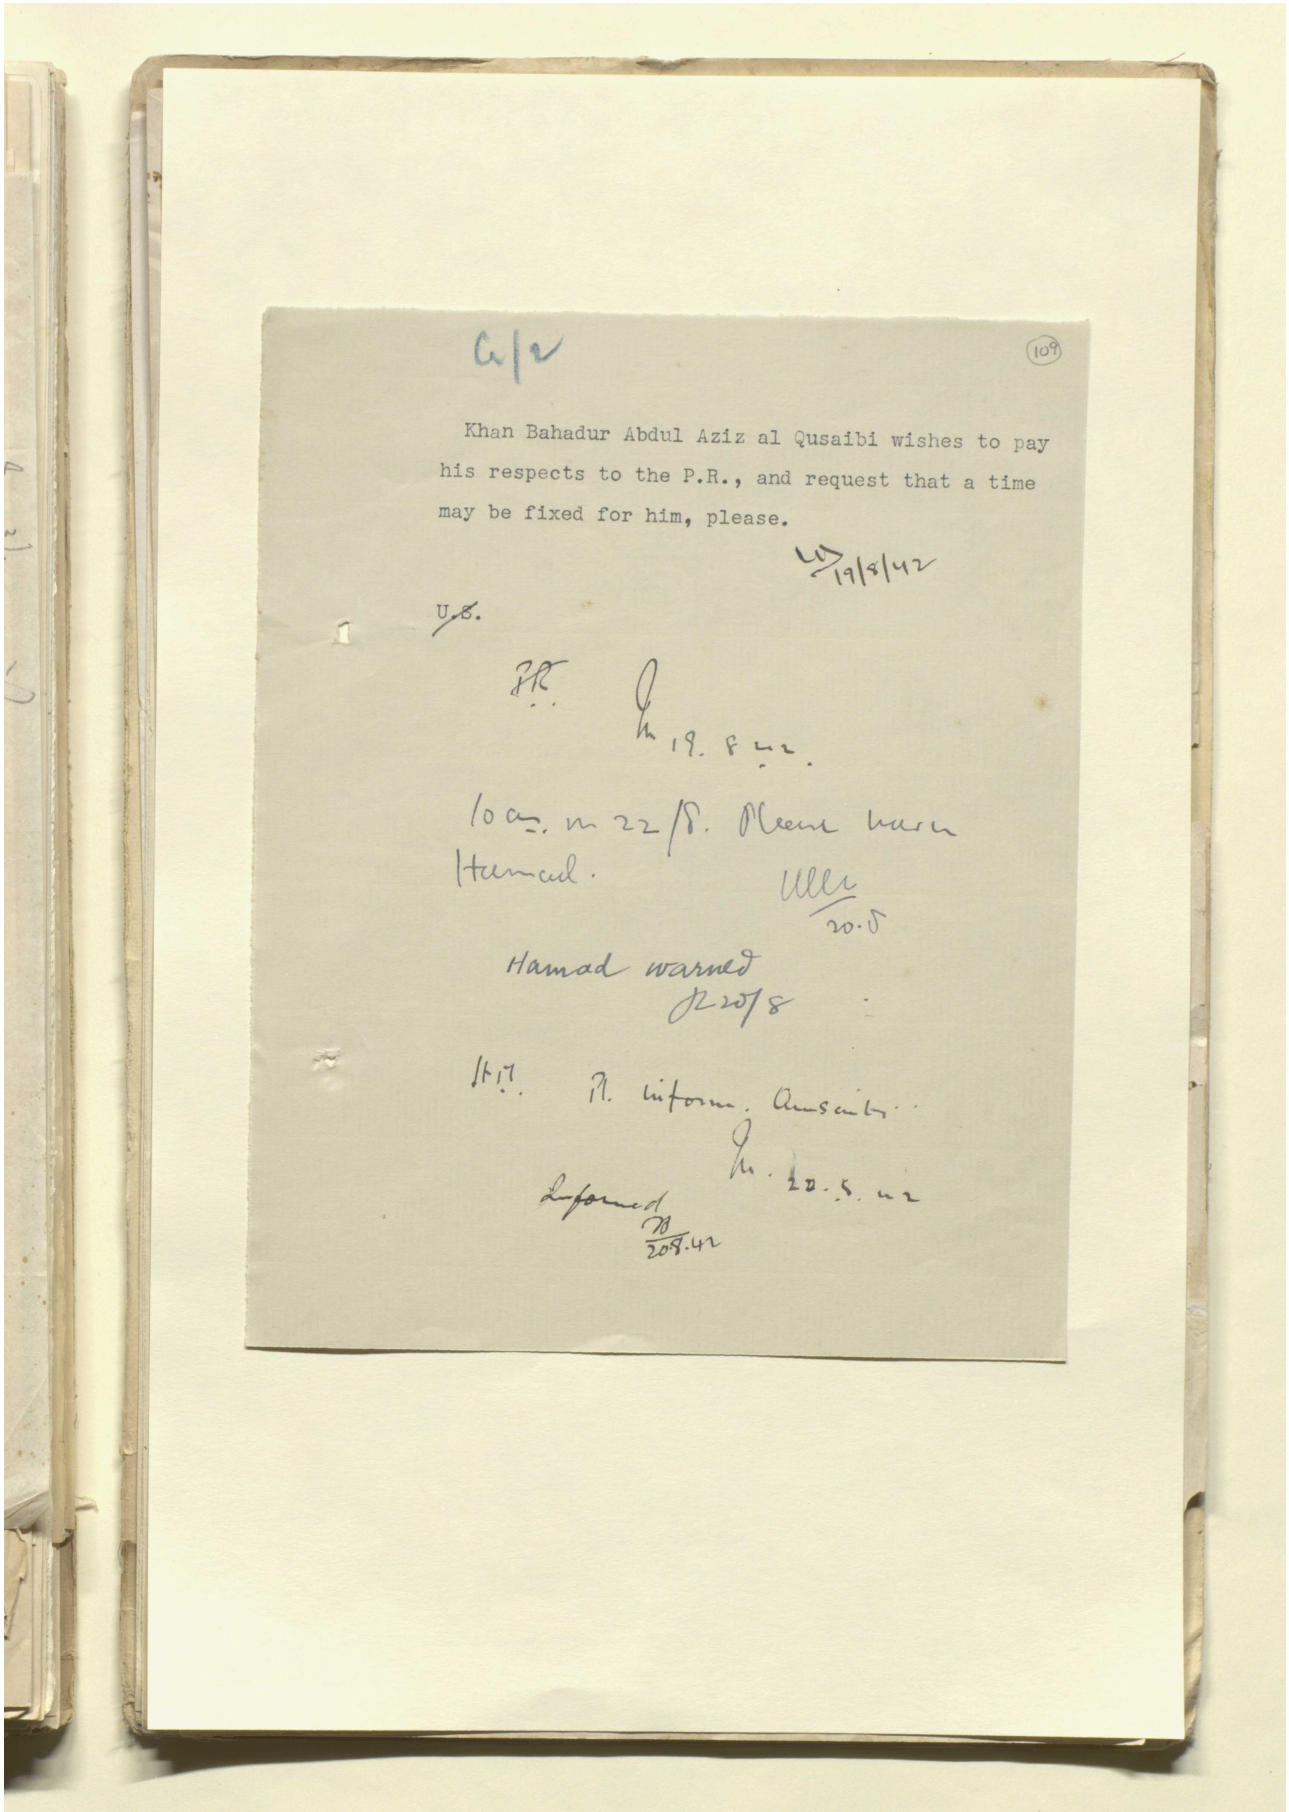 G/2
109
Khan Bahadur Abdul Aziz al Qusaibi wishes to pay
his respects to the P.R., and request that a time
may be fixed for him, please.
19/8/42
U.S.
P.R.
19. 8 42.
10 am. on 22/8. Please warn
Hamad.
20.8
Hamad warned
20/8
Pl. inform. Qusaibi
20. 8. 42
Informed
20.8.42